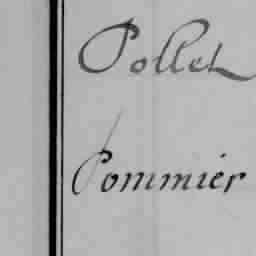 Pollet
Pommier